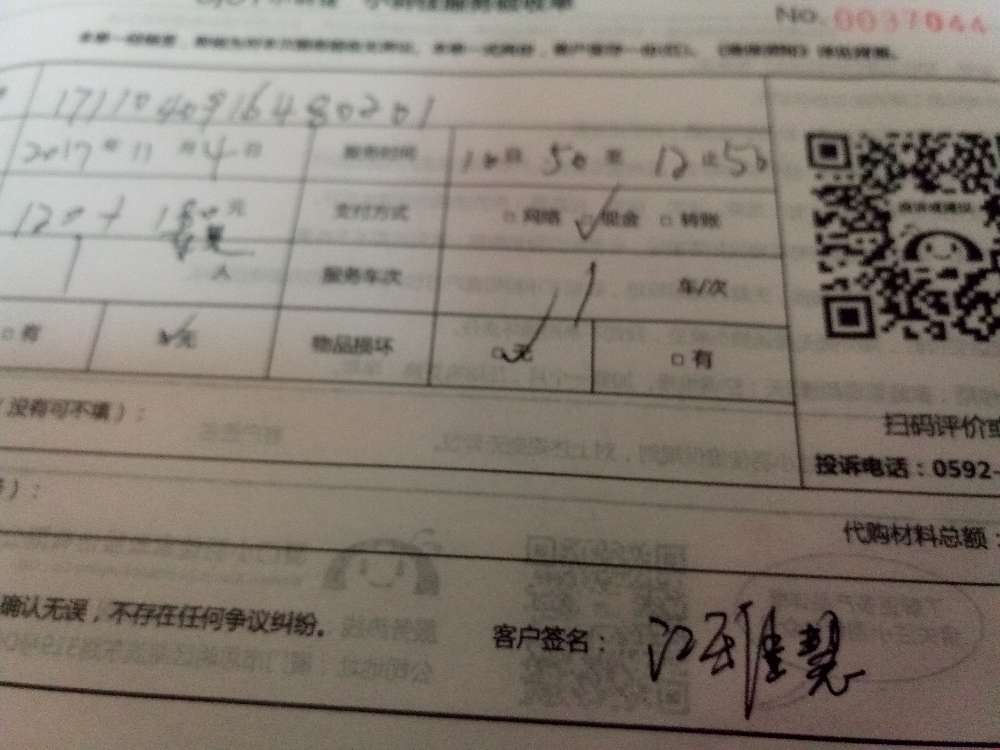 No. 0037044
1711040916480201
2017年11月4日 服务时间 10时50至12止50
120+180元 支付方式 □网络 □现金 □转账
1人 服务车次 1车/次
□有 □无 物品损坏 □无 □有
(没有可不填):
扫码评价或
投诉电话:0592-
代购材料总额:
确认无误,不存在任何争议纠纷。
客户签名:江雅慧